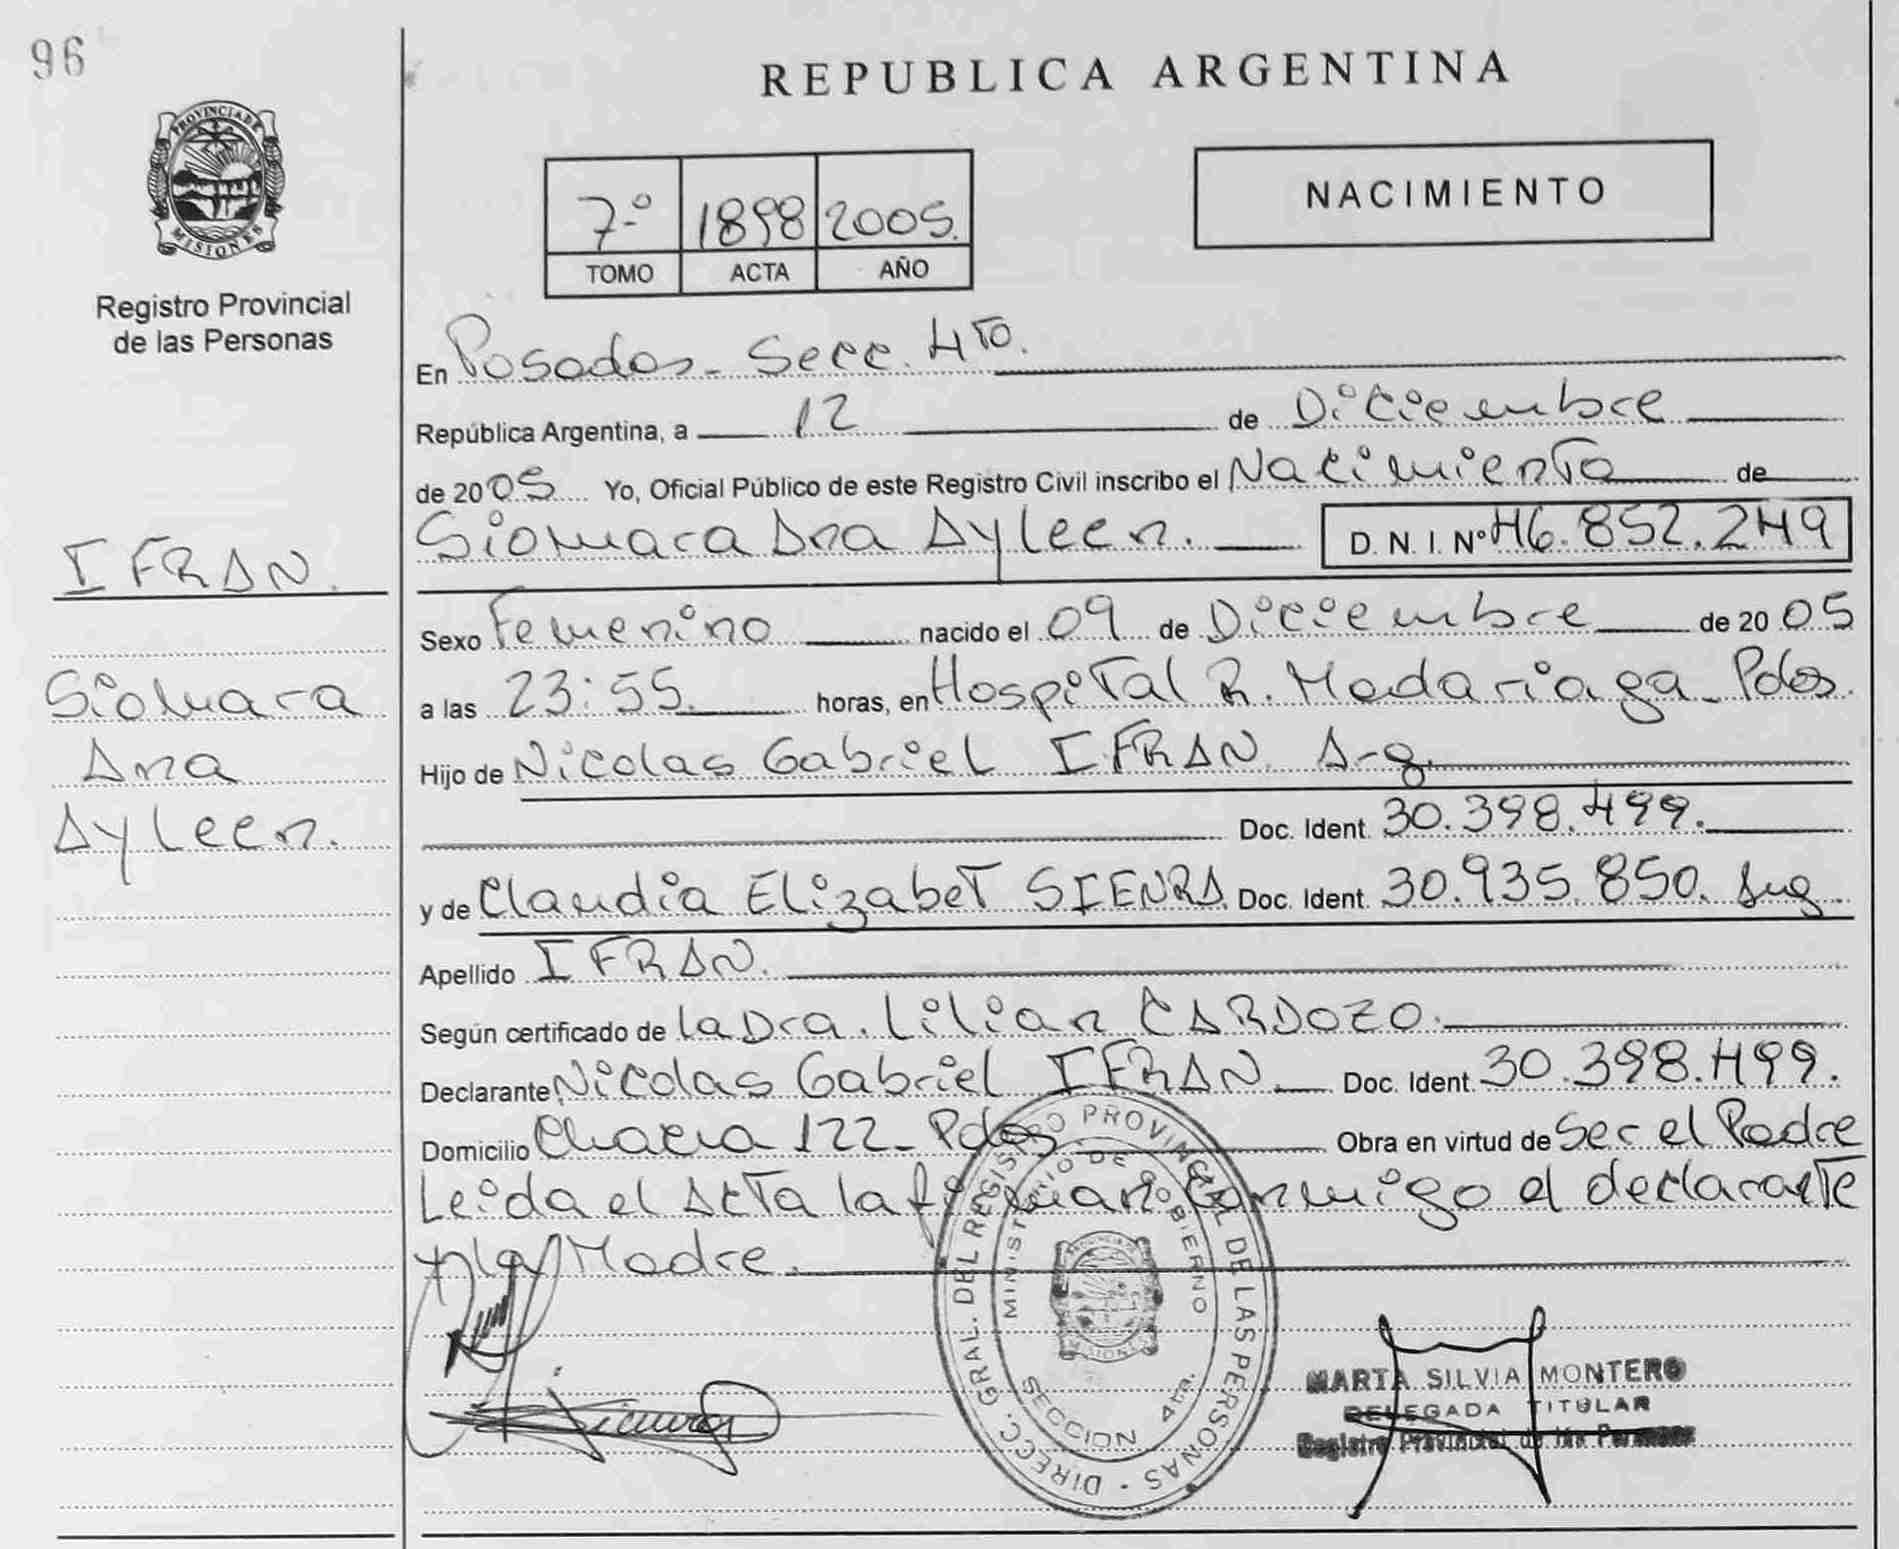 96
REPUBLICA ARGENTINA
PROVINCIA DE
MISIONES
Registro Provincial
de las Personas
7º 1898 2005.
TOMO ACTA AÑO
NACIMIENTO
En Posadas - Secc. 4ta.
República Argentina, a 12 de Diciembre
de 2005 Yo, Oficial Público de este Registro Civil inscribo el Nacimiento de
Siomara Ana Ayleen. D.N.I. Nº 46.852.249
IFRAN.
Siomara
Ana
Ayleen.
Sexo Femenino nacido el 09 de Diciembre de 2005
a las 23:55. horas, en Hospital R. Madariaga - Pdas.
Hijo de Nicolas Gabriel IFRAN. Arg.
Doc. Ident. 30.398.499.
y de Claudia Elizabet SIENRA. Doc. Ident. 30.935.850. Arg.
Apellido IFRAN.
Según certificado de la Dra. Lilian CARDOZO.
Declarante Nicolas Gabriel IFRAN Doc. Ident. 30.398.499.
Domicilio Chacra 122 - Pdas. Obra en virtud de Ser el Padre
Leida el Acta la firman conmigo el declarante
y la Madre.
DIRECC. GRAL. DEL REGISTRO PROVINCIAL DE LAS PERSONAS
MINISTERIO DE GOBIERNO
SECCION 4ta.
MARTA SILVIA MONTERO
DELEGADA TITULAR
Registro Provincial de las Personas